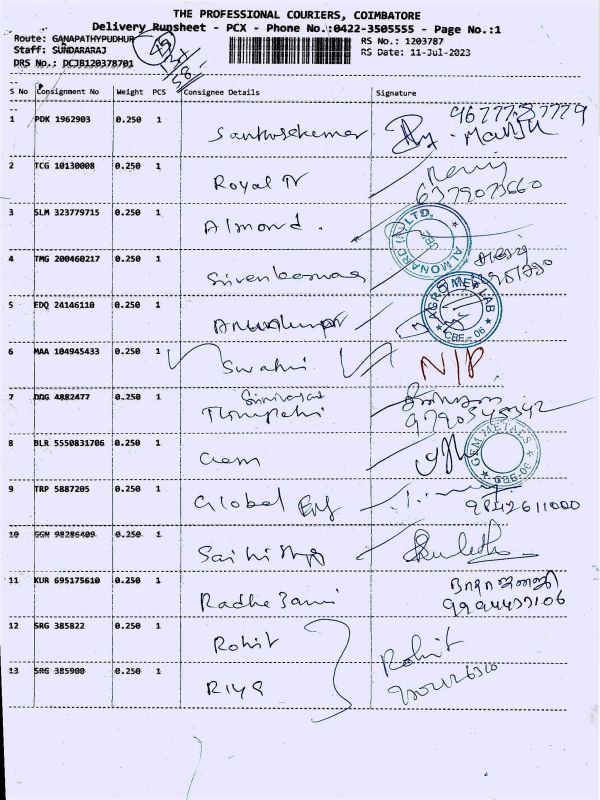 THE PROFESSIONAL COURIERS, COIMBATORE
Delivery Runsheet - PCX - Phone No.:0422-3505555 - Page No.:1
Route: GANAPATHYPUDHUR
Staff: SUNDARARAJ
DRS No.: DCJB120378701
RS No.: 1203787
RS Date: 11-Jul-2023
S No Consignment No Weight PCS Consignee Details Signature
1 PDK 1962903 0.250 1 Santhosekumar 9677787779
2 TCG 10130008 0.250 1 Royal Tr 6379073660
3 SLM 323779715 0.250 1 Almond. ALMONARD (P) LTD. CBE
4 TMG 200460217 0.250 1
5 EDQ 24146110 0.250 1 AGRO MET LAB CBE-06
6 MAA 104945433 0.250 1 Swahi N/P
7 DDG 4882477 0.250 1 Srinivasas Thirupathi 9790545342
8 BLR 5550831706 0.250 1 Gem GEM METALS CBE-06
9 TRP 5887205 0.250 1 Global 9842611000
10 GGN 98286409 0.250 1
11 KUR 695175610 0.250 1 Radhe 9994437106
12 SRG 385822 0.250 1 Rohit Rohit
13 SRG 385900 0.250 1 Riya